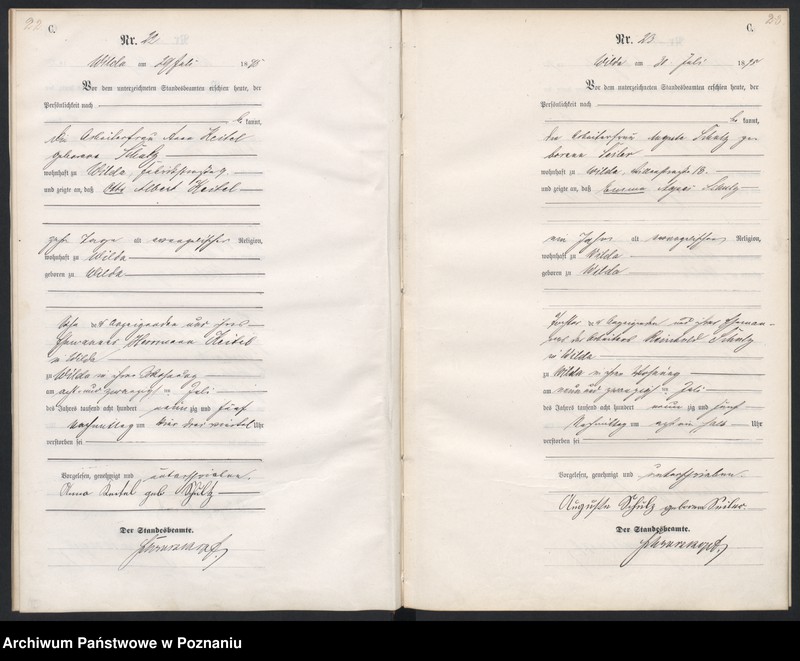 22
C.
Nr. 22
Wilda am 29 Juli 1895
Vor dem unterzeichneten Standesbeamten erschien heute, der
Persönlichkeit nach
be kannt,
die Arbeiterfrau Anna Keitel
geborene Schulz
wohnhaft zu Wilda,
und zeigte an, daß Otto Albert Keitel
zehn Tage alt evangelischer Religion,
wohnhaft zu Wilda
geboren zu Wilda
Sohn der Anzeigenden und ihres
Ehemannes Herrmann Keitel
zu Wilda
zu Wilda in ihrer Wohnung
am acht und zwanzigsten Juli
des Jahres tausend acht hundert neun zig und fünf
Nachmittag um drei drei viertel Uhr
verstorben sei
Vorgelesen, genehmigt und unterschrieben.
Anna Keitel geb Schulz
Der Standesbeamte.
23
C.
Nr. 23
Wilda am Juli 1895
Vor dem unterzeichneten Standesbeamten erschien heute, der
Persönlichkeit nach
be kannt,
die Arbeiterfrau Auguste Schulz ge-
borene
wohnhaft zu Wilda, 13.
und zeigte an, daß Emma Agnes Schulz
ein Jahr alt evangelischer Religion,
wohnhaft zu Wilda
geboren zu Wilda
Tochter der Anzeigenden und ihres Eheman-
nes des Arbeiters Reinhold Schulz
zu Wilda
zu Wilda in ihrer Wohnung
am neun und zwanzigsten Juli
des Jahres tausend acht hundert neun zig und fünf
Nachmittag um acht ein halb Uhr
verstorben sei
Vorgelesen, genehmigt und unterschrieben.
Auguste Schulz geborene
Der Standesbeamte.
Archiwum Państwowe w Poznaniu